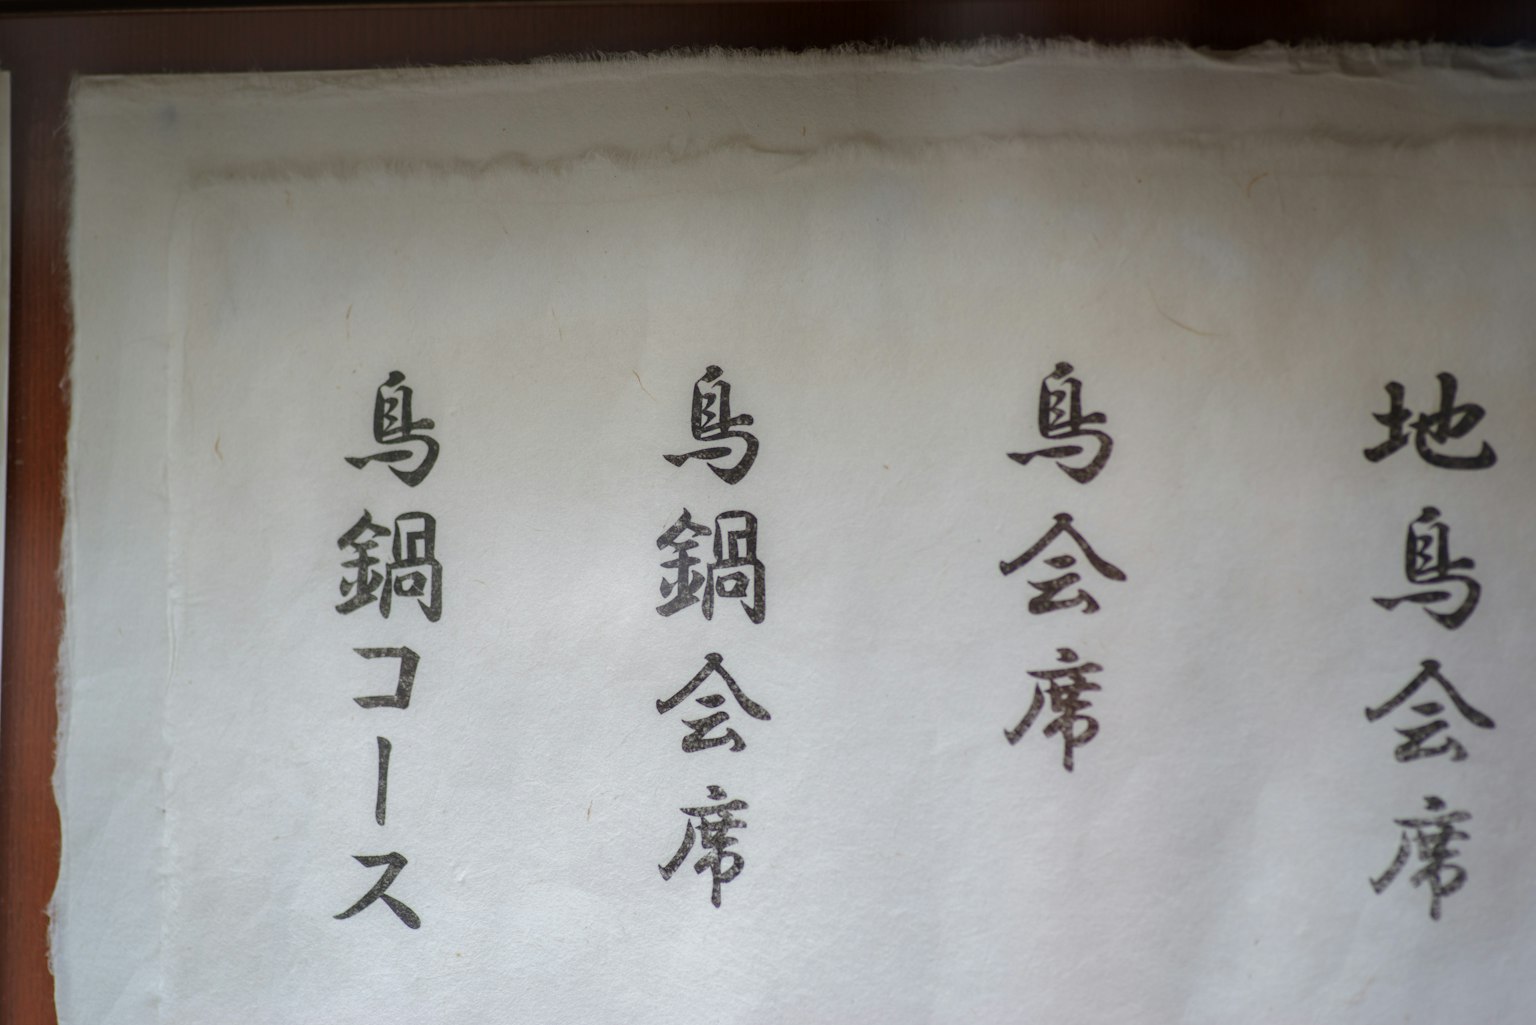 地鳥会席
鳥会席
鳥鍋会席
鳥鍋コース